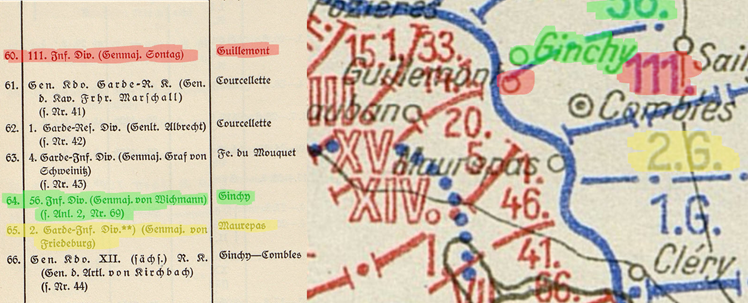 60. 111. Inf. Div. (Genmaj. Sontag) Guillemont
61. Gen. Kdo. Garde-R. K. (Gen. Courcellette
d. Kav. Frhr. Marschall)
(s. Nr. 41)
62. 1. Garde-Res. Div. (Genlt. Albrecht) Courcellette
(s. Nr. 42)
63. 4. Garde-Inf. Div. (Genmaj. Graf von Fe. du Mouquet
Schweinitz)
(s. Nr. 43)
64. 56. Inf. Div. (Genmaj. von Wichmann) Ginchy
(s. Anl. 2, Nr. 69)
65. 2. Garde-Inf. Div.**) (Genmaj. von Maurepas
Friedeburg)
66. Gen. Kdo. XII. (sächs.) R. K. Ginchy—Combles
(Gen. d. Artl. von Kirchbach)
(s. Nr. 44)
Pozières
56.
15.1/33.
Ginchy
Guillemont
111.
Sail
III
Combles
20.
XV.
5.
Maurepas
2.G.
XIV.
1.
46.
1.G.
41.
Cléry
1
VII